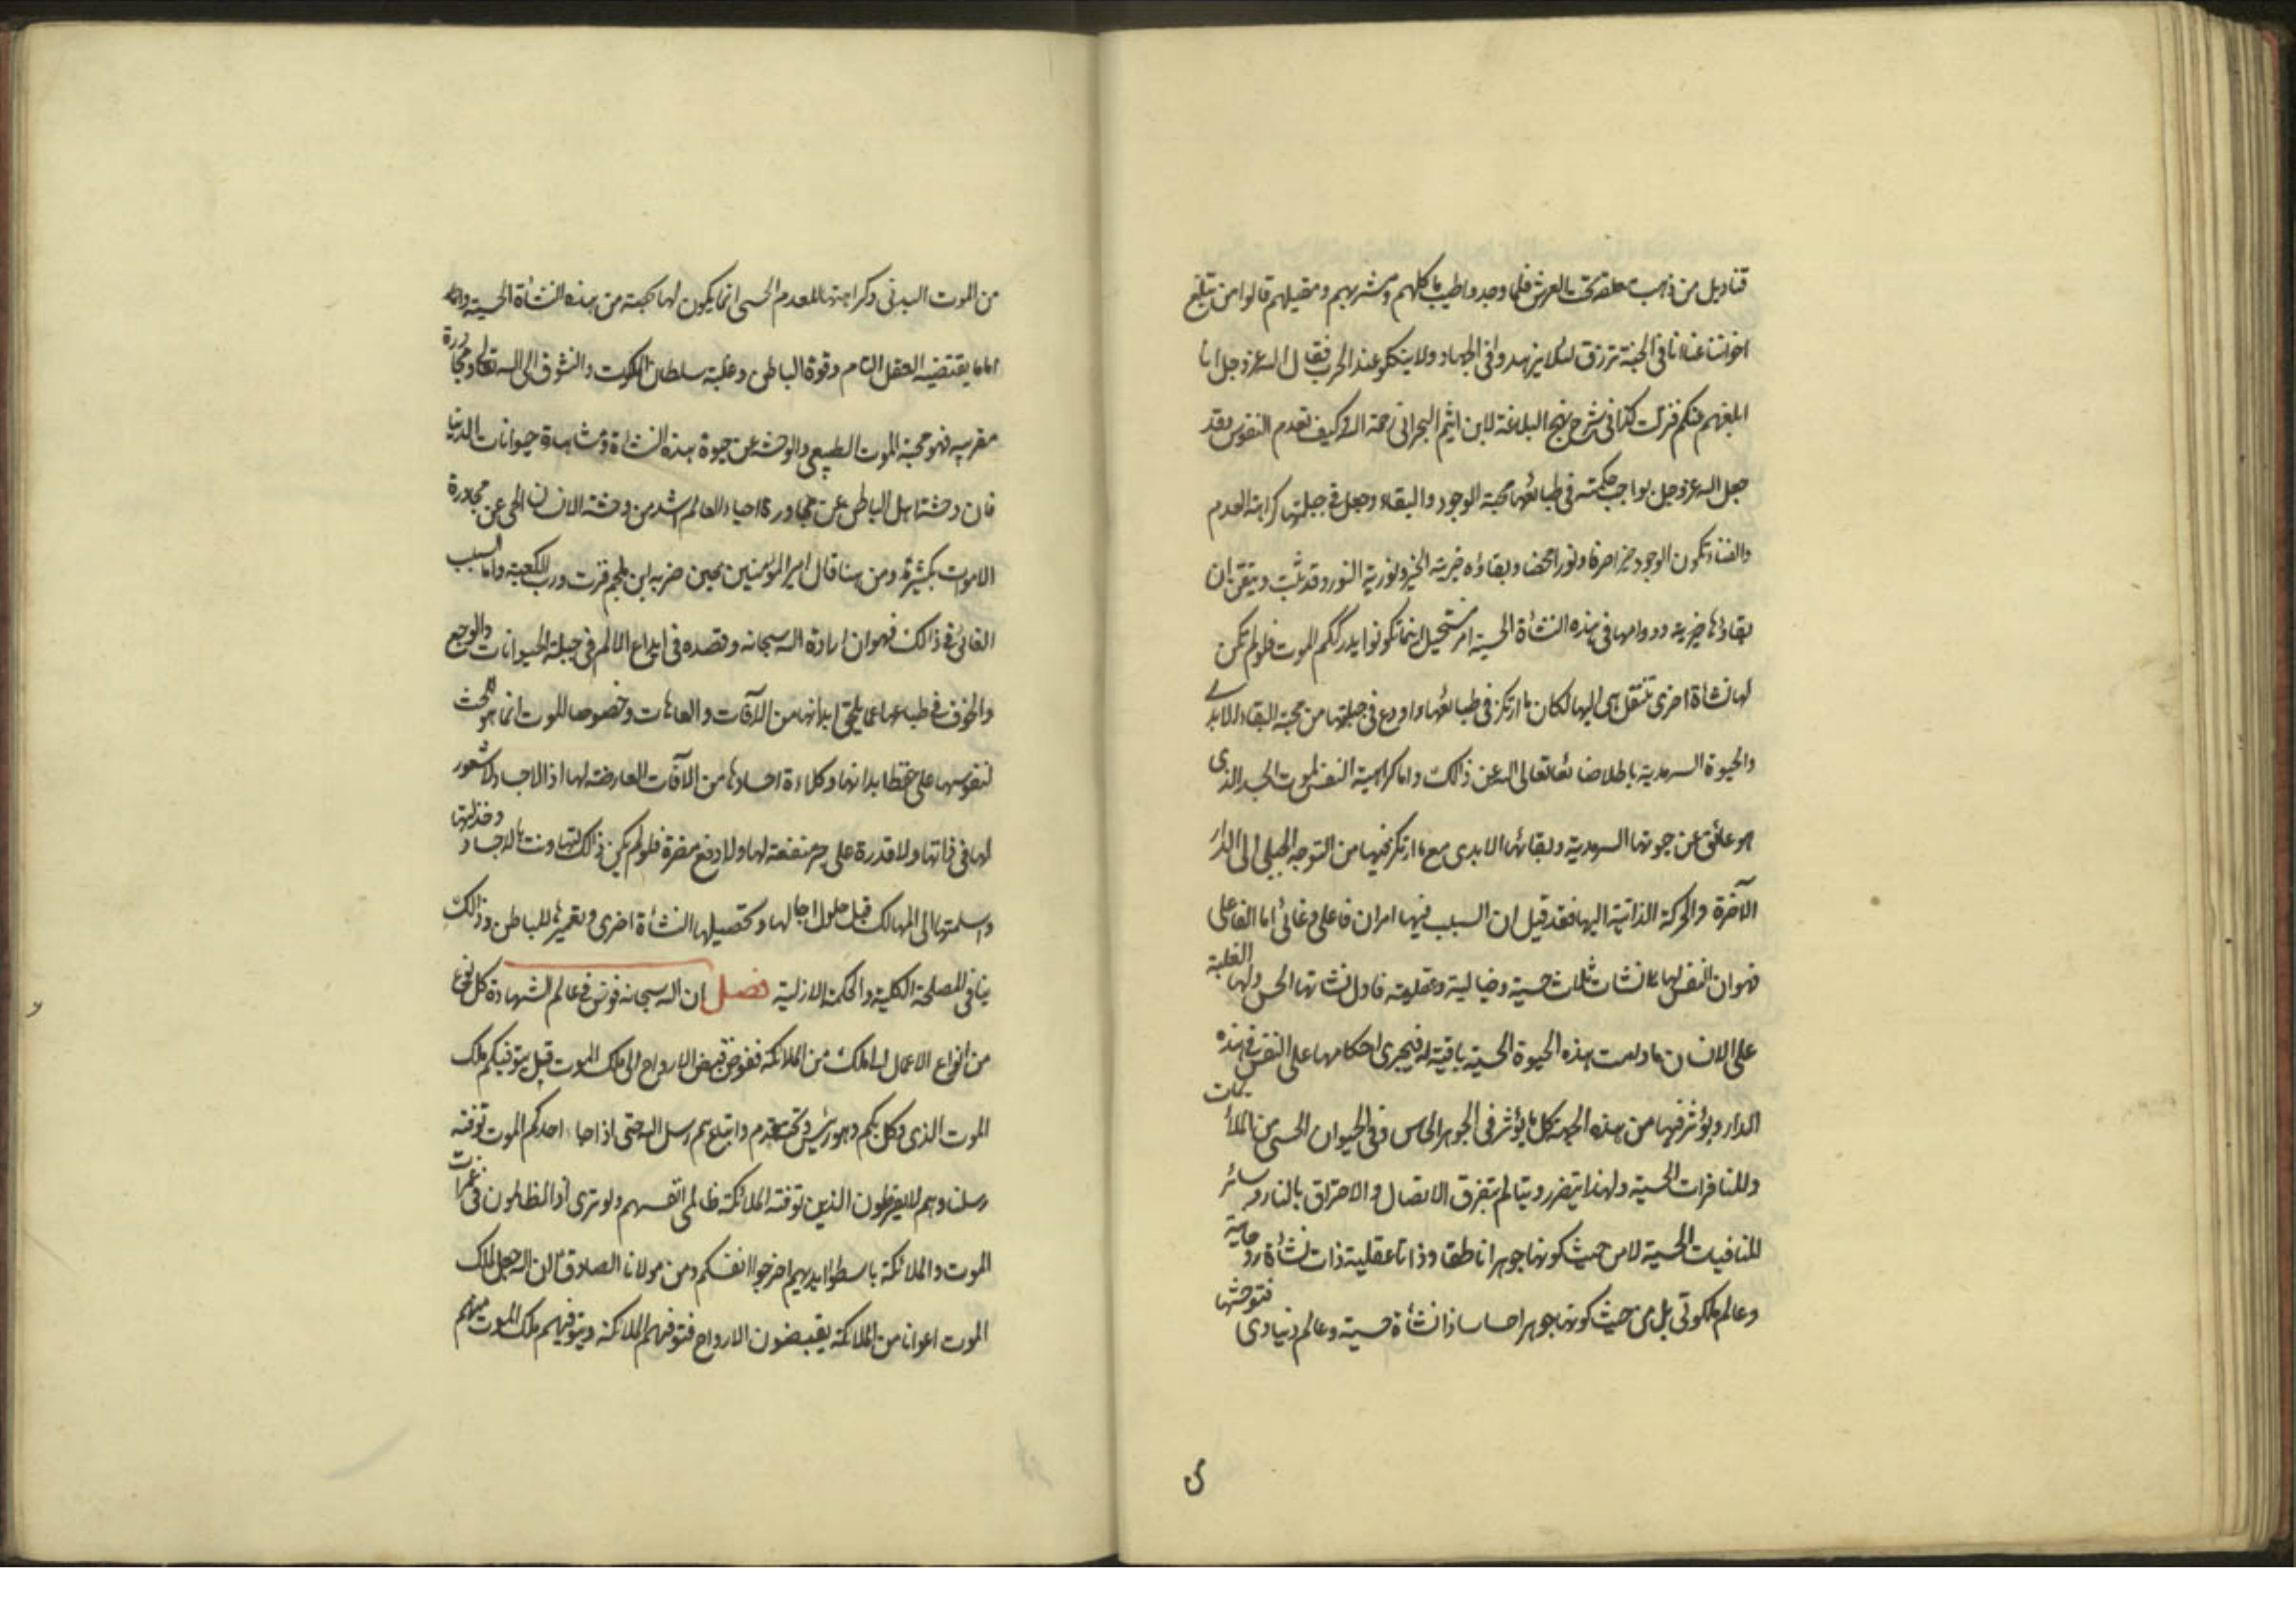 قناديل من ذهب معلقة تحت العرش فلما وجدوا طيب ماكلهم ومشربهم ومقيلهم قالوا من يبلغ
اخواننا عنا انا فى الجنة نرزق لئلا يزهدوا فى الجهاد ولا ينكلوا عند الحرب فقال الله عز وجل انا
ابلغهم عنكم فنزلت كذا فى شرح نهج البلاغة لابن ميثم البحرانى رحمة الله وكيف تعدم النفوس وقد
جعل الله عز وجل بواجب حكمته فى طبائعها محبة الوجود والبقاء وجعل فى جبلتها كراهة العدم
والفناء لكون الوجود خيرا صرفا ونورا محضا وبقاؤه خيرية الخير ونورية النور وقد ثبت وتيقن ان
بقاؤها خيرية ودوامها فى هذه النشأة الحسية امر مستحيل اينما تكونوا يدرككم الموت فلو لم تكن
لها نشأة اخرى تنتقل هى اليها لكان ما ارتكز فى طبائعها واودع فى جبلتها من محبة البقاء الابدى
والحيوة السرمدية باطلا ضائعا تعالى الله عن ذالك واما كراهية النفس لموت الجسد الذى
هو عائق عن حيوتها السرمدية وبقائها الابدى مع ما ارتكز فيها من التوجه الجبلى الى الدار
الآخرة والحركة الذاتية اليها فقد قيل ان السبب فيها امران فاعلى وغائى اما الفاعلى
فهو ان النفس لها نشات ثلاث حسية وخيالية وعقلية فاول نشاتها الحس ولها الغلبة
على الانسان ما دامت هذه الحيوة الحسية باقية له فيجرى احكامها على النفس فى هذه
الدار ويؤثر فيها من هذه الجهة كل ما يؤثر فى الجوهر الحاس وفى الحيوان الحسى من الملائمات
وللمنافرات الحسية ولهذا يتضرر ويتالم بتفرق الاتصال والاحتراق بالنار وسائر
المنافيات الحسية لا من حيث كونها جوهرا ناطقا وذاتا عقلية ذات نشأة روحانية
وعالم ملكوتى بل من حيث كونها جوهرا حساسا ذا نشأة حسية وعالم دنياوى فتوحشها
من الموت البدنى وكراهتها للعدم الحسى انما يكون لها بحصته من هذه النشأة الحسية واما
اما ما يقتضيه العقل التام وقوة الباطن وغلبة سلطان الملكوت والشوق الى الله تعالى ومجاورة
مقربيه فهو محبة الموت الطبيعى والوحشة عن حيوة هذه النشاة ومشاهدة حيوانات الدنيا
فان وحشة اهل الباطن عن مجاورة احياء العالم اشد من وحشة الانسان الحى عن مجاورة
الاموات بكثير ومن هنا قال امير المؤمنين حين ضربه ابن ملجم فزت ورب الكعبة واما السبب
الغائى فى ذالك فهو ان ارادة الله سبحانه وقصده فى ايداع الالم فى جبلة الحيوانات والوجع
والخوف فى طباعها عما يلحق ابدانها من الآفات والعاهات وخصوصا للموت انما هو لحث
لنفوسها على حفظ ابدانها وكلاءة اجسادها من الآفات العارضة لها اذ الاجساد لا شعور
لها فى ذاتها ولا قدرة على جر منفعة لها ولا دفع مضرة فلو لم يكن ذالك لتهاونت بالاجساد وخذلتها
واسلمتها الى المهالك قبل حلول اجالها وتحصيلها النشأة اخرى وتعميرها للباطن وذالك
ينافى المصلحة الكلية والحكمة الازلية فصل ان الله سبحانه فوض فى عالم الشهادة كل نوع
من انواع الاعمال الى ملك من الملائكة ففوض قبض الارواح الى ملك الموت قل يتوفيكم ملك
الموت الذى وكل بكم وهو رئيس وتحته خدم واتباع هم رسل الله حتى اذا جاء احدكم الموت توفته
رسلنا وهم لا يفرطون الذين توفته الملائكة ظالمى انفسهم ولو ترى اذ الظالمون فى غمرات
الموت والملائكة باسطوا ايديهم اخرجوا انفسكم ومن مولانا الصادق ان الله جعل لملك
الموت اعوانا من الملائكة يقبضون الارواح فتوفيهم الملائكة ويتوفيهم ملك الموت منهم